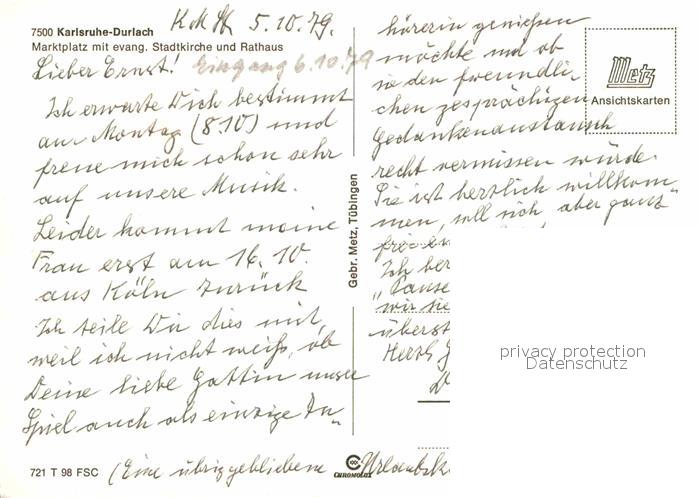 7500 Karlsruhe-Durlach
Marktplatz mit evang. Stadtkirche und Rathaus
5.10.79.
Lieber Ernst! Eingang 6.10.79
Ich erwarte Dich bestimmt
am Montag (8.10) und
freue mich schon sehr
auf unsere Musik.
Leider kommt meine
Frau erst am 16. 10.
aus Köln zurück
Ich teile Dir dies mit,
weil ich nicht weiß, ob
Deine liebe Gattin unser
Spiel auch als einzige Zu„
hörerin genießen
möchte und ob
sie den freundli
chen gesprächigen
Gedankenaustausch
recht vermissen würde.
Sie ist herzlich willkom„
men, soll sich aber ganz
frei en
Ich ber
„Pause
wir sie
überst
Herzl
(Eine übriggebliebene Urlaubsk
Gebr. Metz, Tübingen
Metz
Ansichtskarten
privacy protection
Datenschutz
721 T 98 FSC
CHROMOLUX